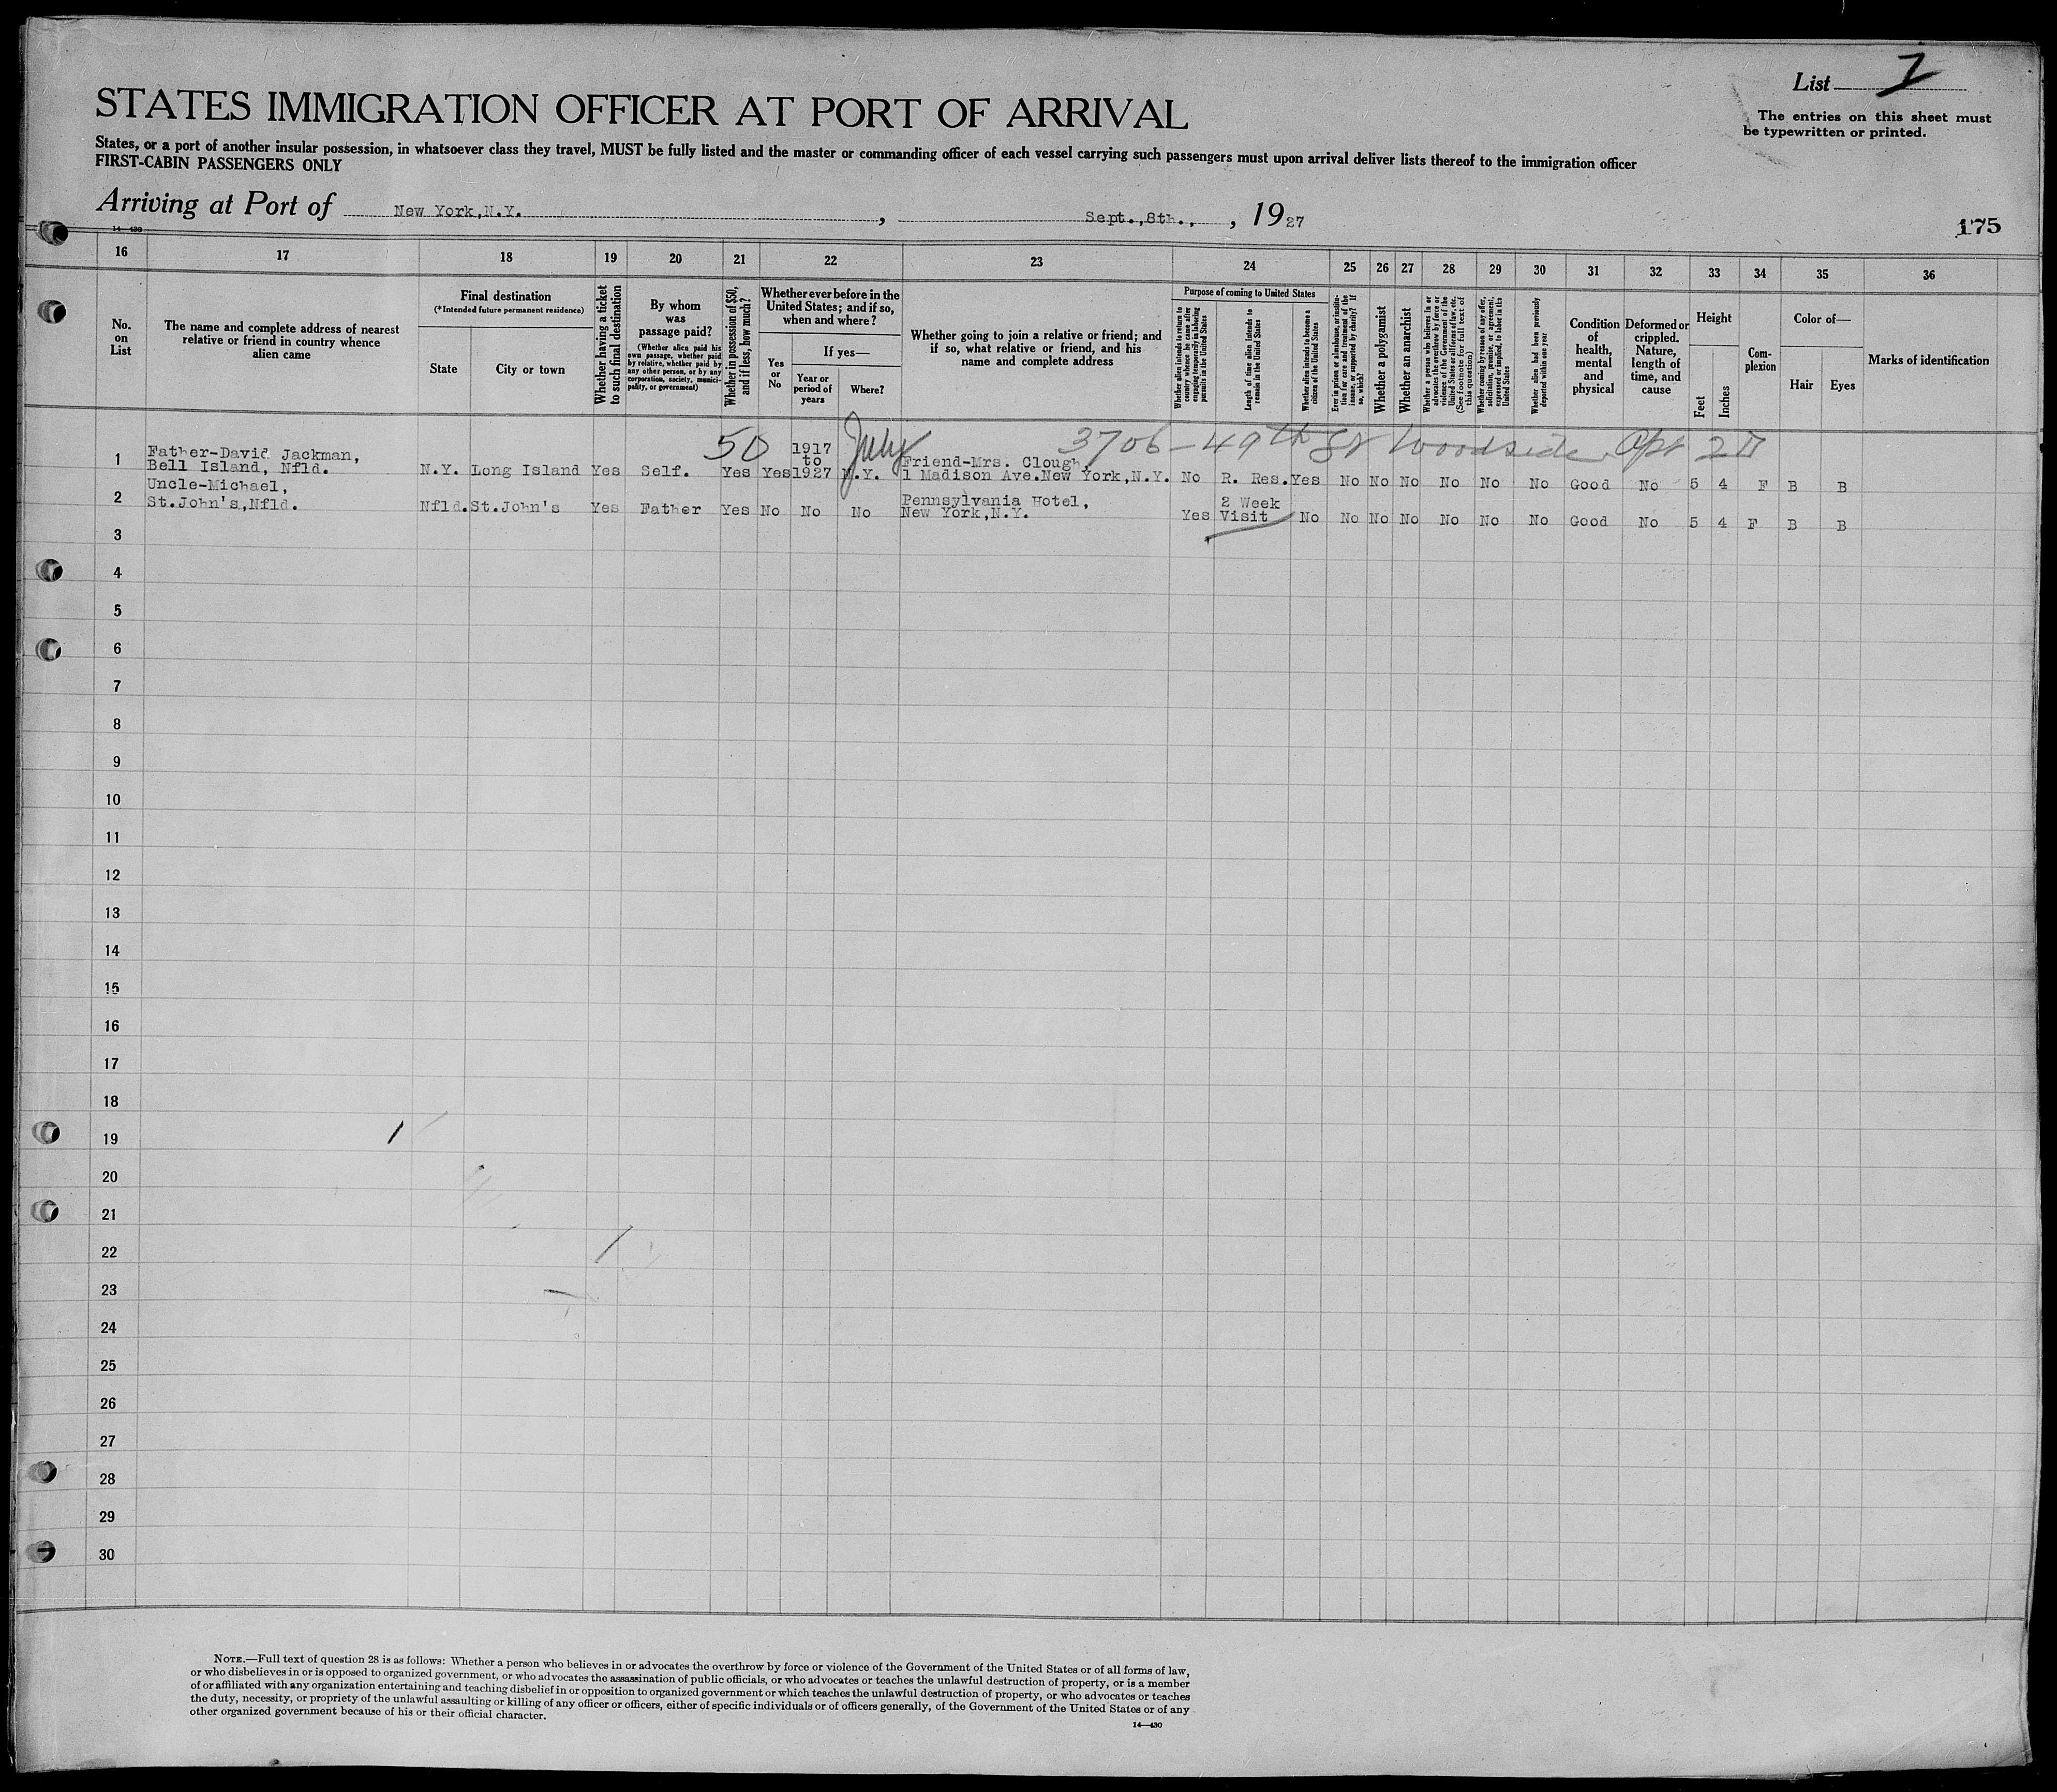 List 7
The entries on this sheet must
be typewritten or printed.
STATES IMMIGRATION OFFICER AT PORT OF ARRIVAL
States, or a port of another insular possession, in whatsoever class they travel, MUST be fully listed and the master or commanding officer of each vessel carrying such passengers must upon arrival deliver lists thereof to the immigration officer
FIRST-CABIN PASSENGERS ONLY
Arriving at Port of New York,N.Y. , Sept.,8th., , 1927
175
14—430
16 17 18 19 20 21 22 23 24 25 26 27 28 29 30 31 32 33 34 35 36
No.
on
List
The name and complete address of nearest
relative or friend in country whence
alien came
Final destination
(*Intended future permanent residence)
State
City or town
Whether having a ticket
to such final destination
By whom
was
passage paid?
(Whether alien paid his
own passage, whether paid
by relative, whether paid by
any other person, or by any
corporation, society, munici-
pality, or government)
Whether in possession of $50,
and if less, how much?
Whether ever before in the
United States; and if so,
when and where?
Yes
or
No
If yes—
Year or
period of
years
Where?
Whether going to join a relative or friend; and
if so, what relative or friend, and his
name and complete address
Purpose of coming to United States
Whether alien intends to return to
country whence he came after
engaging temporarily in laboring
pursuits in the United States
Length of time alien intends to
remain in the United States
Whether alien intends to become a
citizen of the United States
Ever in prison or almshouse, or institu-
tion for care and treatment of the
insane, or supported by charity? If
so, which?
Whether a polygamist
Whether an anarchist
Whether a person who believes in or
advocates the overthrow by force or
violence of the Government of the
United States or all forms of law, etc.
(See footnote for full text of
this question)
Whether coming by reason of any offer,
solicitation, promise, or agreement,
expressed or implied, to labor in the
United States
Whether alien had been previously
deported within one year
Condition
of
health,
mental
and
physical
Deformed or
crippled.
Nature,
length of
time, and
cause
Height
Feet
Inches
Com-
plexion
Color of—
Hair
Eyes
Marks of identification
50 July 3706-49th St Woodside Apt 2D
1 Father-David Jackman,
Bell Island, Nfld. N.Y. Long Island Yes Self. Yes Yes 1917
to
1927 N.Y. Friend-Mrs. Clough,
1 Madison Ave.New York,N.Y. No R. Res. Yes No No No No No No Good No 5 4 F B B
2 Uncle-Michael,
St.John's,Nfld. Nfld. St.John's Yes Father Yes No No No Pennsylvania Hotel,
New York,N.Y. Yes 2 Week
Visit No No No No No No No Good No 5 4 F B B
3
4
5
6
7
8
9
10
11
12
13
14
15
16
17
18
19
20
21
22
23
24
25
26
27
28
29
30
NOTE.—Full text of question 28 is as follows: Whether a person who believes in or advocates the overthrow by force or violence of the Government of the United States or of all forms of law,
or who disbelieves in or is opposed to organized government, or who advocates the assassination of public officials, or who advocates or teaches the unlawful destruction of property, or is a member
of or affiliated with any organization entertaining and teaching disbelief in or opposition to organized government or which teaches the unlawful destruction of property, or who advocates or teaches
the duty, necessity, or propriety of the unlawful assaulting or killing of any officer or officers, either of specific individuals or of officers generally, of the Government of the United States or of any
other organized government because of his or their official character.
14—430